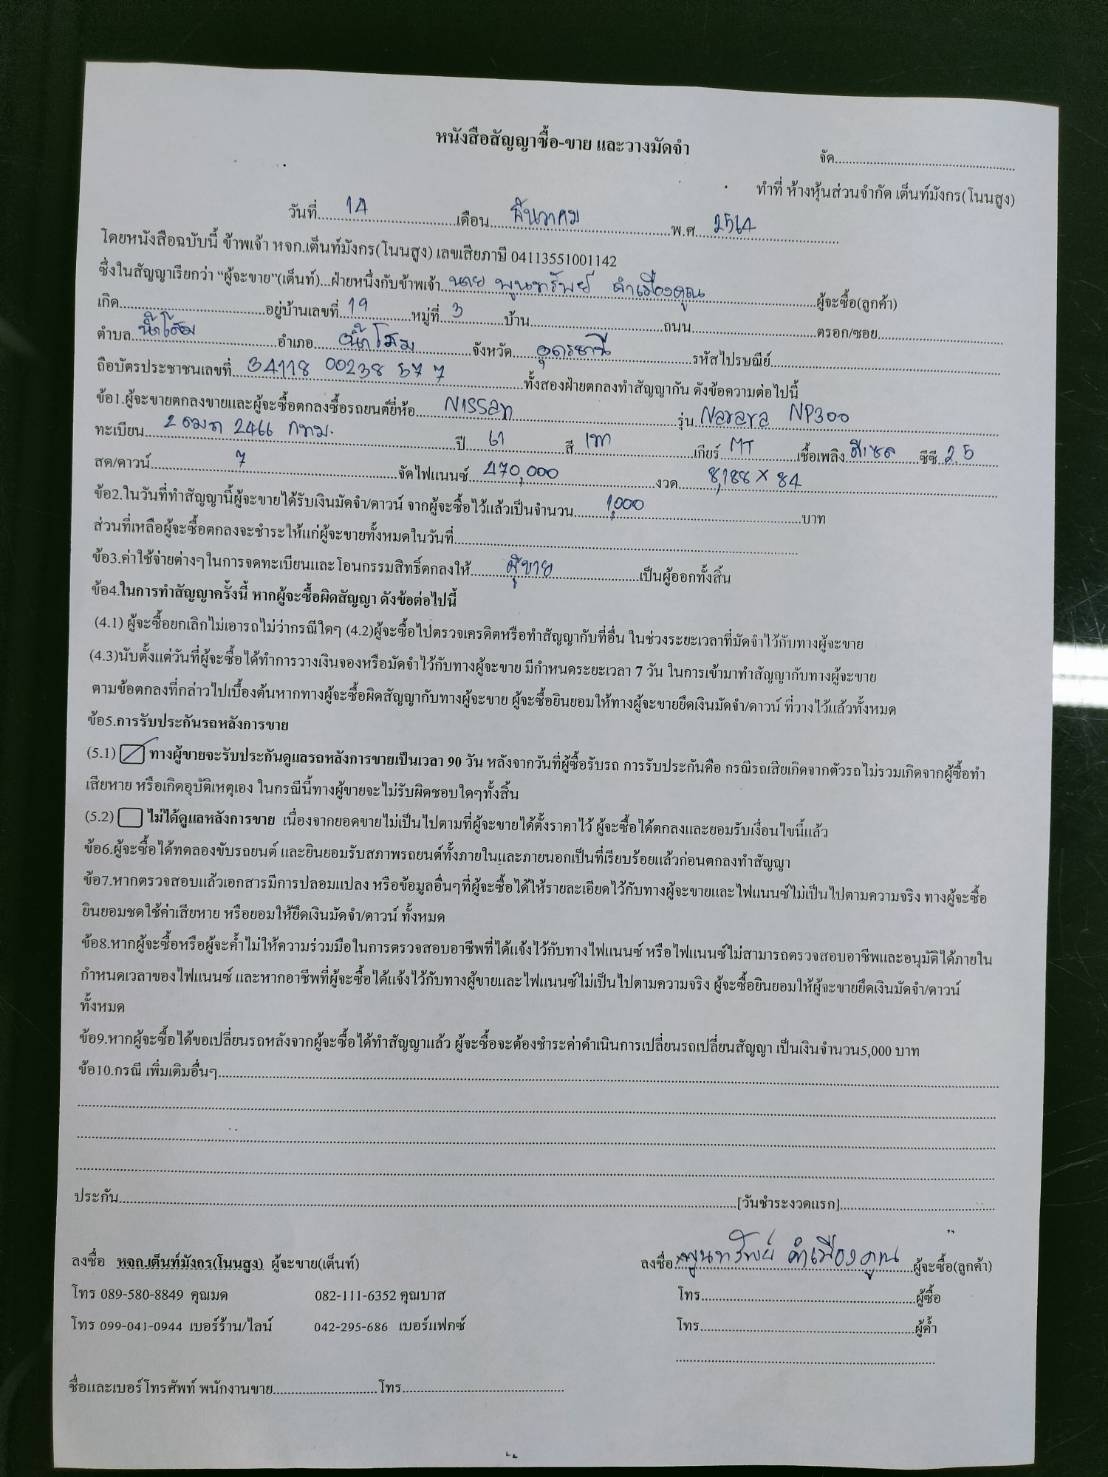 หนังสือสัญญาซื้อ-ขาย และวางมัดจำ
จัด
ทำที่ ห้างหุ้นส่วนจำกัด เต็นท์มังกร(โนนสูง)
วันที่ 14 เดือน ธันวาคม พ.ศ. 2564
โดยหนังสือฉบับนี้ ข้าพเจ้า หจก.เต็นท์มังกร(โนนสูง) เลขเสียภาษี 04113551001142
ซึ่งในสัญญาเรียกว่า "ผู้จะขาย"(เต็นท์)...ฝ่ายหนึ่งกับข้าพเจ้า นาย พูนทรัพย์ คำเมืองคูณ ผู้จะซื้อ(ลูกค้า)
เกิด อยู่บ้านเลขที่ 19 หมู่ที่ 3 บ้าน ถนน ตรอก/ซอย
ตำบล น้ำโสม อำเภอ น้ำโสม จังหวัด อุดรธานี รหัสไปรษณีย์
ถือบัตรประชาชนเลขที่ 34118 00238 57 7 ทั้งสองฝ่ายตกลงทำสัญญากัน ดังข้อความต่อไปนี้
ข้อ1.ผู้จะขายตกลงขายและผู้จะซื้อตกลงซื้อรถยนต์ยี่ห้อ NISSAN รุ่น Navara NP300
ทะเบียน 2466 กทม. ปี 61 สี เทา เกียร์ MT เชื้อเพลิง ดีเซล ซีซี 2.5
สด/ดาวน์ 7 จัดไฟแนนซ์ 470,000 งวด 8,188 × 84
ข้อ2.ในวันที่ทำสัญญานี้ผู้จะขายได้รับเงินมัดจำ/ดาวน์ จากผู้จะซื้อไว้แล้วเป็นจำนวน 1,000 บาท
ส่วนที่เหลือผู้จะซื้อตกลงจะชำระให้แก่ผู้จะขายทั้งหมดในวันที่
ข้อ3.ค่าใช้จ่ายต่างๆในการจดทะเบียนและโอนกรรมสิทธิ์ตกลงให้ ผู้ขาย เป็นผู้ออกทั้งสิ้น
ข้อ4.ในการทำสัญญาครั้งนี้ หากผู้จะซื้อผิดสัญญา ดังข้อต่อไปนี้
(4.1) ผู้จะซื้อยกเลิกไม่เอารถไม่ว่ากรณีใดๆ (4.2)ผู้จะซื้อไปตรวจเครดิตหรือทำสัญญากับที่อื่น ในช่วงระยะเวลาที่มัดจำไว้กับทางผู้จะขาย
(4.3)นับตั้งแต่วันที่ผู้จะซื้อได้ทำการวางเงินจองหรือมัดจำไว้กับทางผู้จะขาย มีกำหนดระยะเวลา 7 วัน ในการเข้ามาทำสัญญากับทางผู้จะขาย
ตามข้อตกลงที่กล่าวไปเบื้องต้นหากทางผู้จะซื้อผิดสัญญากับทางผู้จะขาย ผู้จะซื้อยินยอมให้ทางผู้จะขายยึดเงินมัดจำ/ดาวน์ ที่วางไว้แล้วทั้งหมด
ข้อ5.การรับประกันรถหลังการขาย
(5.1) ทางผู้ขายจะรับประกันดูแลรถหลังการขายเป็นเวลา 90 วัน หลังจากวันที่ผู้ซื้อรับรถ การรับประกันคือ กรณีรถเสียเกิดจากตัวรถไม่รวมเกิดจากผู้ซื้อทำ
เสียหาย หรือเกิดอุบัติเหตุเอง ในกรณีนี้ทางผู้ขายจะไม่รับผิดชอบใดๆทั้งสิ้น
(5.2) ไม่ได้ดูแลหลังการขาย เนื่องจากยอดขายไม่เป็นไปตามที่ผู้จะขายได้ตั้งราคาไว้ ผู้จะซื้อได้ตกลงและยอมรับเงื่อนไขนี้แล้ว
ข้อ6.ผู้จะซื้อได้ทดลองขับรถยนต์ และยินยอมรับสภาพรถยนต์ทั้งภายในและภายนอกเป็นที่เรียบร้อยแล้วก่อนตกลงทำสัญญา
ข้อ7.หากตรวจสอบแล้วเอกสารมีการปลอมแปลง หรือข้อมูลอื่นๆที่ผู้จะซื้อได้ให้รายละเอียดไว้กับทางผู้จะขายและไฟแนนซ์ไม่เป็นไปตามความจริง ทางผู้จะซื้อ
ยินยอมชดใช้ค่าเสียหาย หรือยอมให้ยึดเงินมัดจำ/ดาวน์ ทั้งหมด
ข้อ8.หากผู้จะซื้อหรือผู้จะค้ำไม่ให้ความร่วมมือในการตรวจสอบอาชีพที่ได้แจ้งไว้กับทางไฟแนนซ์ หรือไฟแนนซ์ไม่สามารถตรวจสอบอาชีพและอนุมัติได้ภายใน
กำหนดเวลาของไฟแนนซ์ และหากอาชีพที่ผู้จะซื้อได้แจ้งไว้กับทางผู้ขายและไฟแนนซ์ไม่เป็นไปตามความจริง ผู้จะซื้อยินยอมให้ผู้จะขายยึดเงินมัดจำ/ดาวน์
ทั้งหมด
ข้อ9.หากผู้จะซื้อได้ขอเปลี่ยนรถหลังจากผู้จะซื้อได้ทำสัญญาแล้ว ผู้จะซื้อจะต้องชำระค่าดำเนินการเปลี่ยนรถเปลี่ยนสัญญา เป็นเงินจำนวน5,000 บาท
ข้อ10.กรณี เพิ่มเติมอื่นๆ
ประกัน [วันชำระงวดแรก]
ลงชื่อ หจก.เต็นท์มังกร(โนนสูง) ผู้จะขาย(เต็นท์) ลงชื่อ พูนทรัพย์ คำเมืองคูณ ผู้จะซื้อ(ลูกค้า)
โทร 089-580-8849 คุณมด 082-111-6352 คุณบาส โทร ผู้ซื้อ
โทร 099-041-0944 เบอร์ร้าน/ไลน์ 042-295-686 เบอร์แฟกซ์ โทร ผู้ค้ำ
ชื่อและเบอร์โทรศัพท์ พนักงานขาย โทร